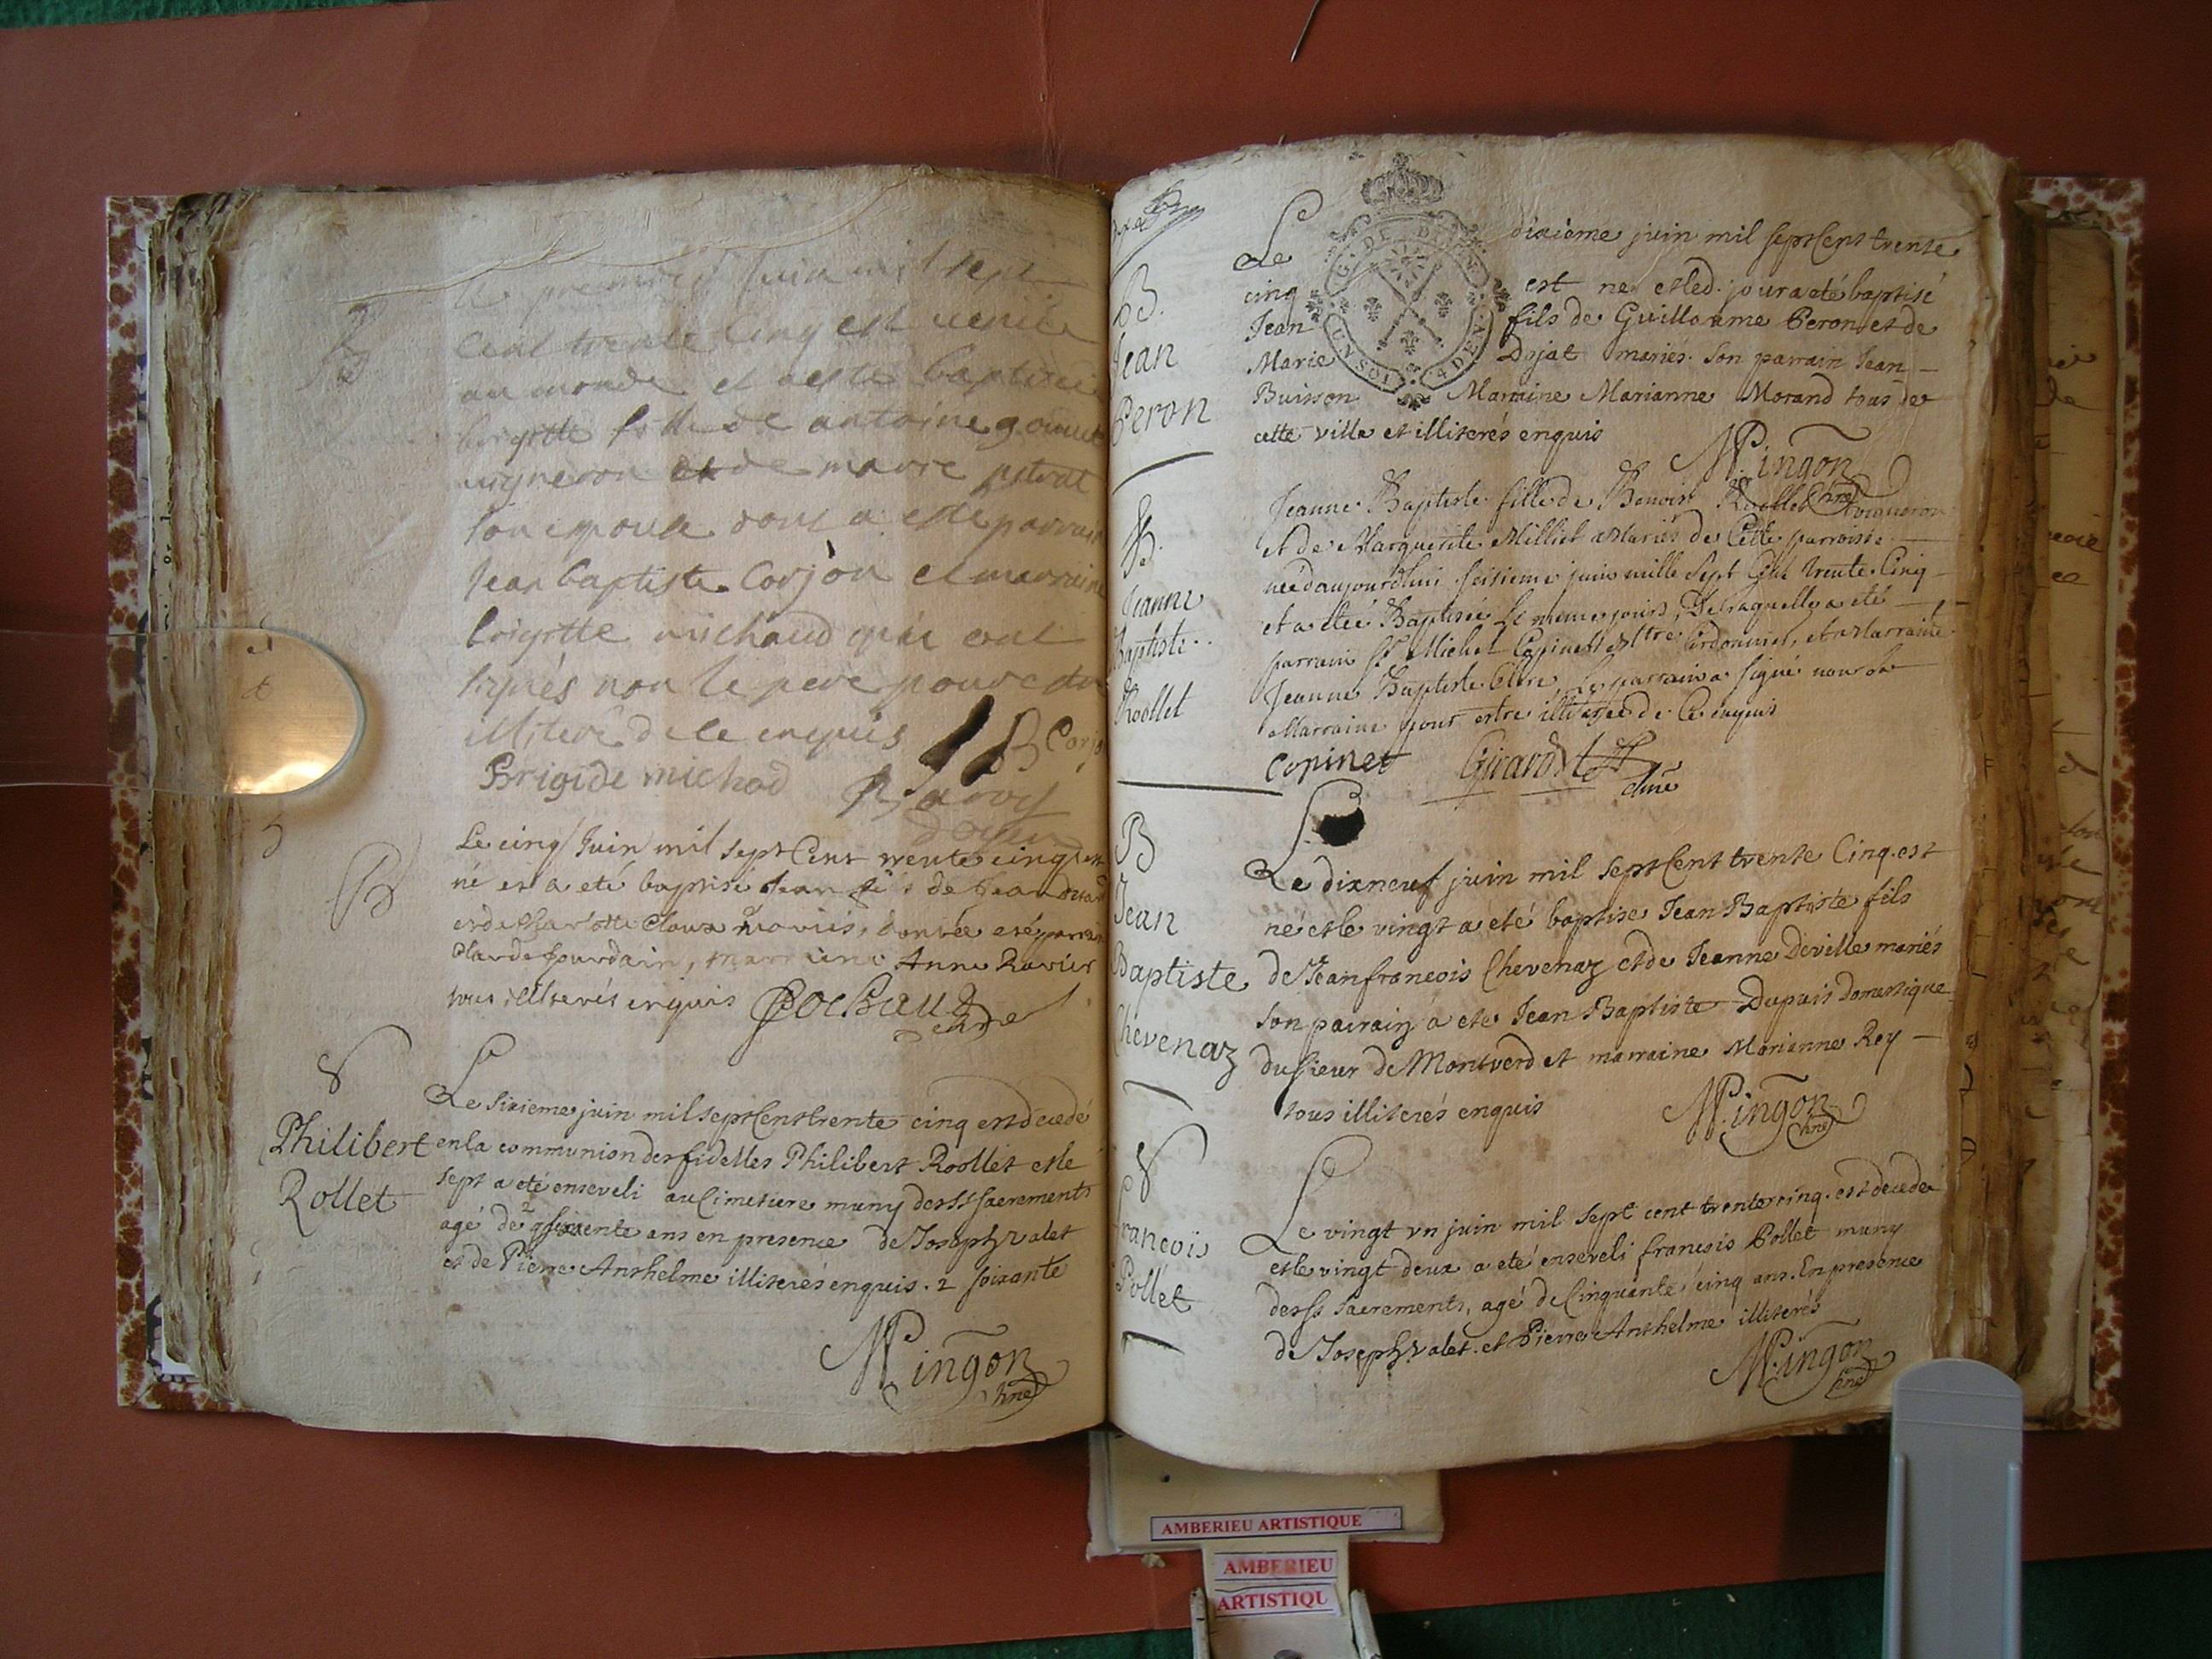 B
le premier Juin mil sept
cent trente cinq est venüe
au monde et a este baptisée
brigitte fille de antoine
vigneron et de marie
son epouse dont a esté parrain
Jean baptiste Corjon et marraine
brigitte michaud qui ont
signés non le pere pour etre
illiteré de ce enquis
JB Corjo
Brigide michod
B
Le cinq Juin mil sept Cent trente cinq est
né et a eté baptisé Jean fils de Jean
et de Charlotte Cloux mariés, dont a eté parrain
Claude Jourdain, marraine Anne Ravier
tous illiterés enquis
Philibert
Rollet
Le sixieme juin mil sept Cent trente cinq est decedé
en la communion des fidelles Philibert Roollet et le
sept a eté enseveli au Cimetiere muny des SS sacrements
agé de ans en presence de Joseph Valet
et de Pierre Anthelme illiterés enquis. 2 soixante
Mingon
B.
Jean
Peron
Le dixiême juin mil sept Cent trente
cinq est né et led. jour a eté baptisé
Jean fils de Guillaume Peron et de
Marie Dojat mariés. Son parrain Jean
Buisson Marraine Marianne Morand tous de
cette ville et illiterés enquis
Mingon
B.
Jeanne
Baptiste
Roollet
Jeanne Baptiste fille de Benoit Roollet vigneron
et de Marguerite Milliet Mariés de Cette parroisse
née d'aujourd'hui seisieme juin mille Sept Cent trente Cinq
et a etéé Baptisée Le meme jours, De laquelle a eté
parrain Sr. Michel Copinet Mtre. Cordonnier, et Marraine
Jeanne Baptiste Clere, Le parrain a signé non la
Marraine pour estre illiterée de Ce enquis
Copinet Girardet
B
Jean
Baptiste
Chevenaz
Le dixneuf juin mil sept Cent trente Cinq. est
né et le vingt a eté baptise Jean Baptiste fils
de Jeanfrancois Chevenaz et de Jeanne Deville mariés
Son parrain a ete Jean Baptiste Dupuis Domestique
du sieur de Montverd et marraine Marianne Rey
tous illiterés enquis
Mingon
francois
Pollet
Le vingt vn juin mil sept cent trente cinq. est decedé
et le vingt deux a eté enseveli francois Pollet muny
des ss sacrements, agé de Cinquante cinq ans. En presence
de Joseph Valet et Pierre Anthelme illiterés
Mingon
AMBERIEU ARTISTIQUE
AMBERIEU
ARTISTIQU